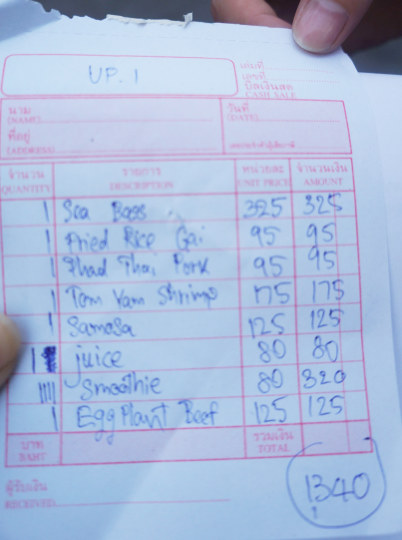 UP. 1
เล่มที่
เลขที่
บิลเงินสด
CASH SALE
นาม
(NAME)
วันที่
(DATE)
ที่อยู่
(ADDRESS)
จำนวน รายการ หน่วยละ จำนวนเงิน
QUANTITY DESCRIPTION UNIT PRICE AMOUNT
1 Sea Bass 325 325
1 Fried Rice Gai 95 95
1 Phad Thai Pork 95 95
1 Tom Yam Shrimp 175 175
1 Samosa 125 125
1 juice 80 80
1111 Smoothie 80 320
1 Egg Plant Beef 125 125
บาท รวมเงิน
BAHT TOTAL
ผู้รับเงิน
RECEIVED
1340